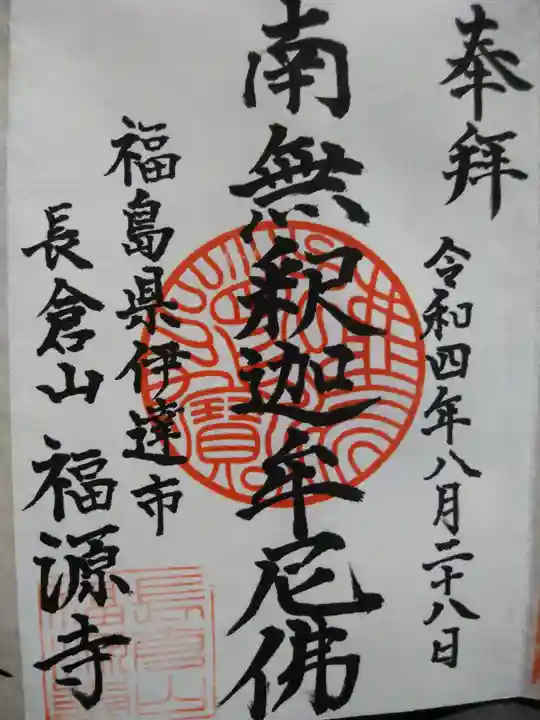 奉拝
令和四年八月二十八日
南無釈迦牟尼佛
福島県伊達市
長倉山 福源寺